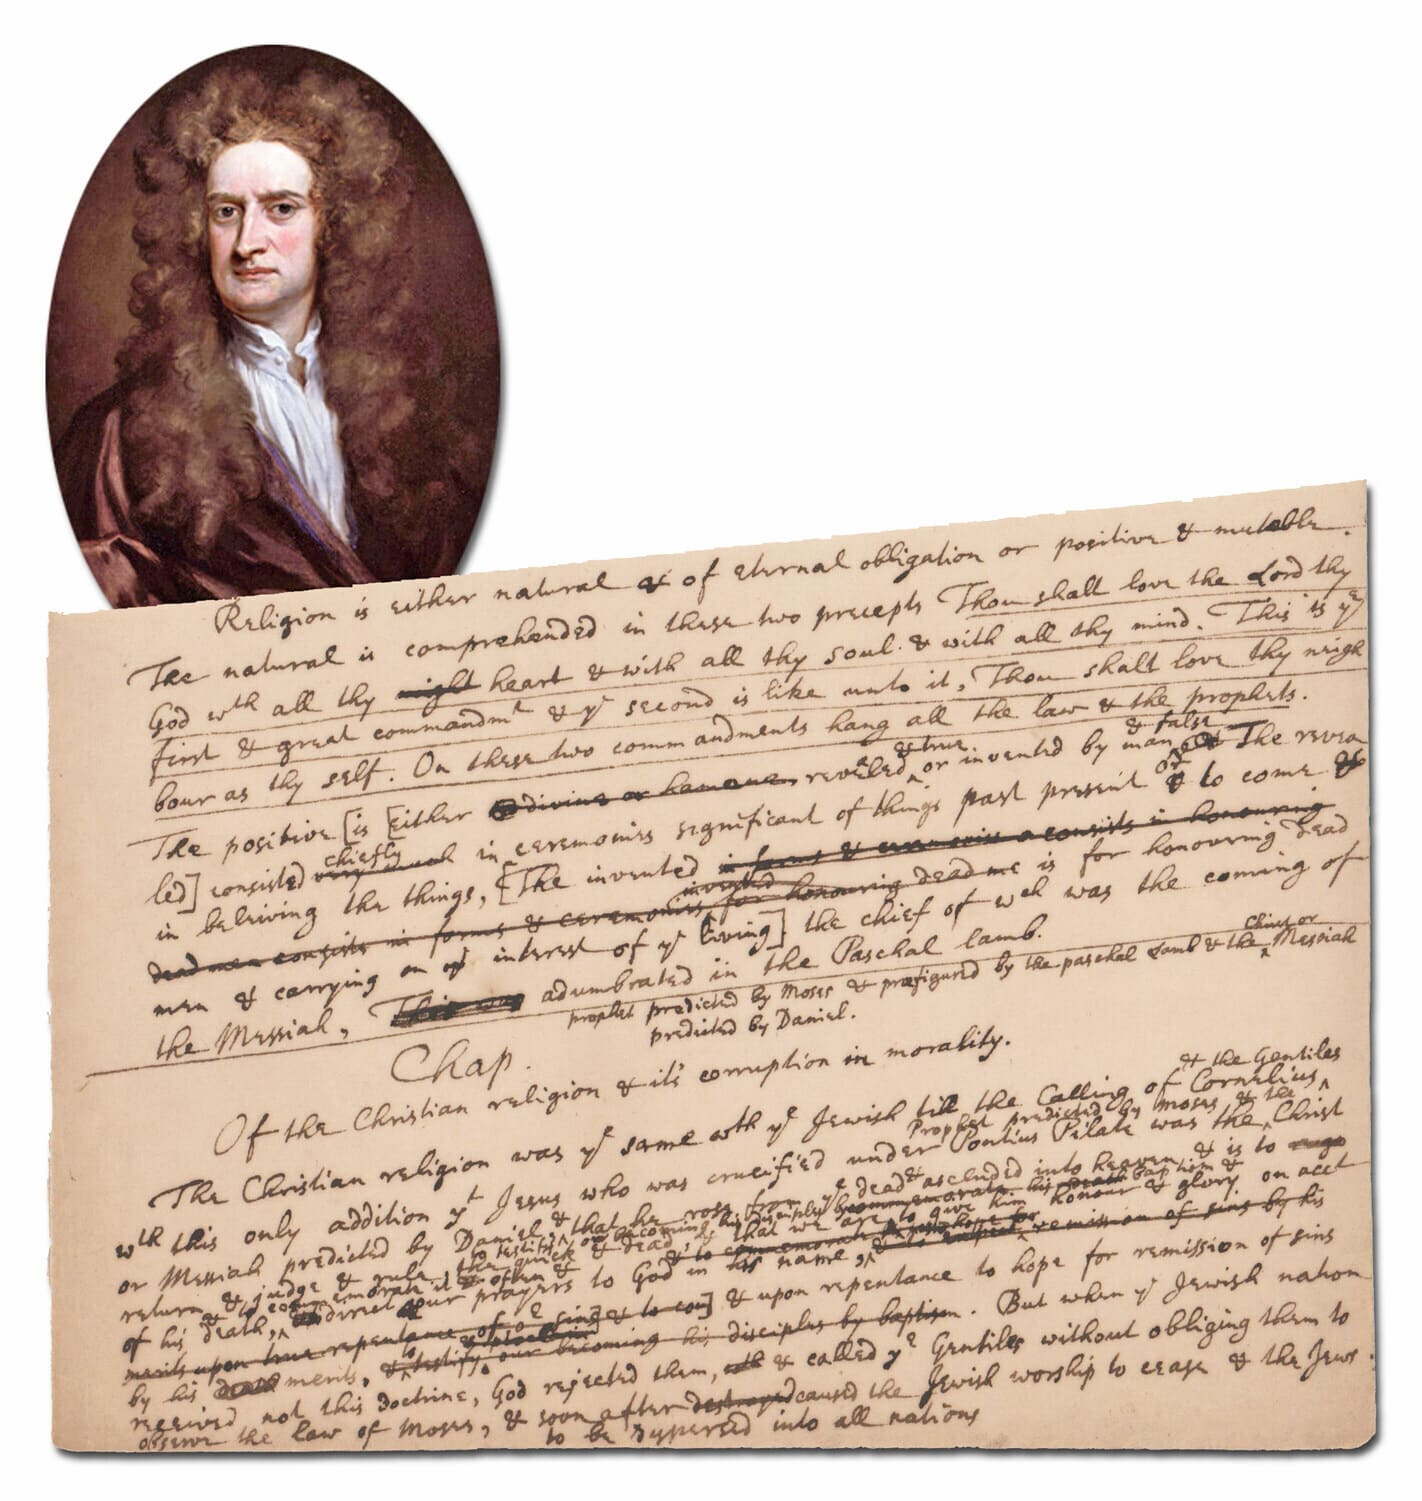 Religion is either natural & of eternal obligation or positive & mutable.
The natural is comprehended in these two precepts Thou shalt love the Lord thy
God wth all thy might heart & with all thy soul & with all thy mind. This is ye
first & great commandmt & ye second is like unto it, Thou shalt love thy neigh
bour as thy self. On these two commandments hang all the law & the prophets.
& true & false
The positive [is [either divine or humane revealed or invented by man The revea
led] consisted chiefly in ceremonies significant of things past present or to come
in beleiving the things, [The invented in forms & ceremonies consists in honouring
invented
dead men consists in forms & ceremonies for honouring dead me is for honouring dead
men & carrying on interest of ye living] the chief of wch was the coming of
the Messiah, This was adumbrated in the Paschal lamb.
prophet predicted by Moses & prefigured by the paschal Lamb & the Christ or Messiah
predicted by Daniel.
Chap.
Of the Christian religion & its corruption in morality.
& the Gentiles
The Christian religion was ye same wth ye Jewish till the Calling of Cornelius
Prophet predicted by Moses & the
wth this only addition yt Jesus who was crucified under Pontius Pilate was the Christ
or Messiah predicted by Daniel & that he rose from ye dead & ascended into heaven & is to
return & judge & rule the quick & dead, & that we are to give him honour & glory on acct
of his death, & direct our prayers to God in his name, & remission of sins by his
merits upon true repentance & upon repentance to hope for remission of sins
by his death merits, & testify our becoming his disciples by baptism. But when ye Jewish nation
received not this doctrine, God rejected them, & called ye Gentiles without obliging them to
observe the law of Moses, & soon after destroyed caused the Jewish worship to cease & the Jews
to be dispersed into all nations